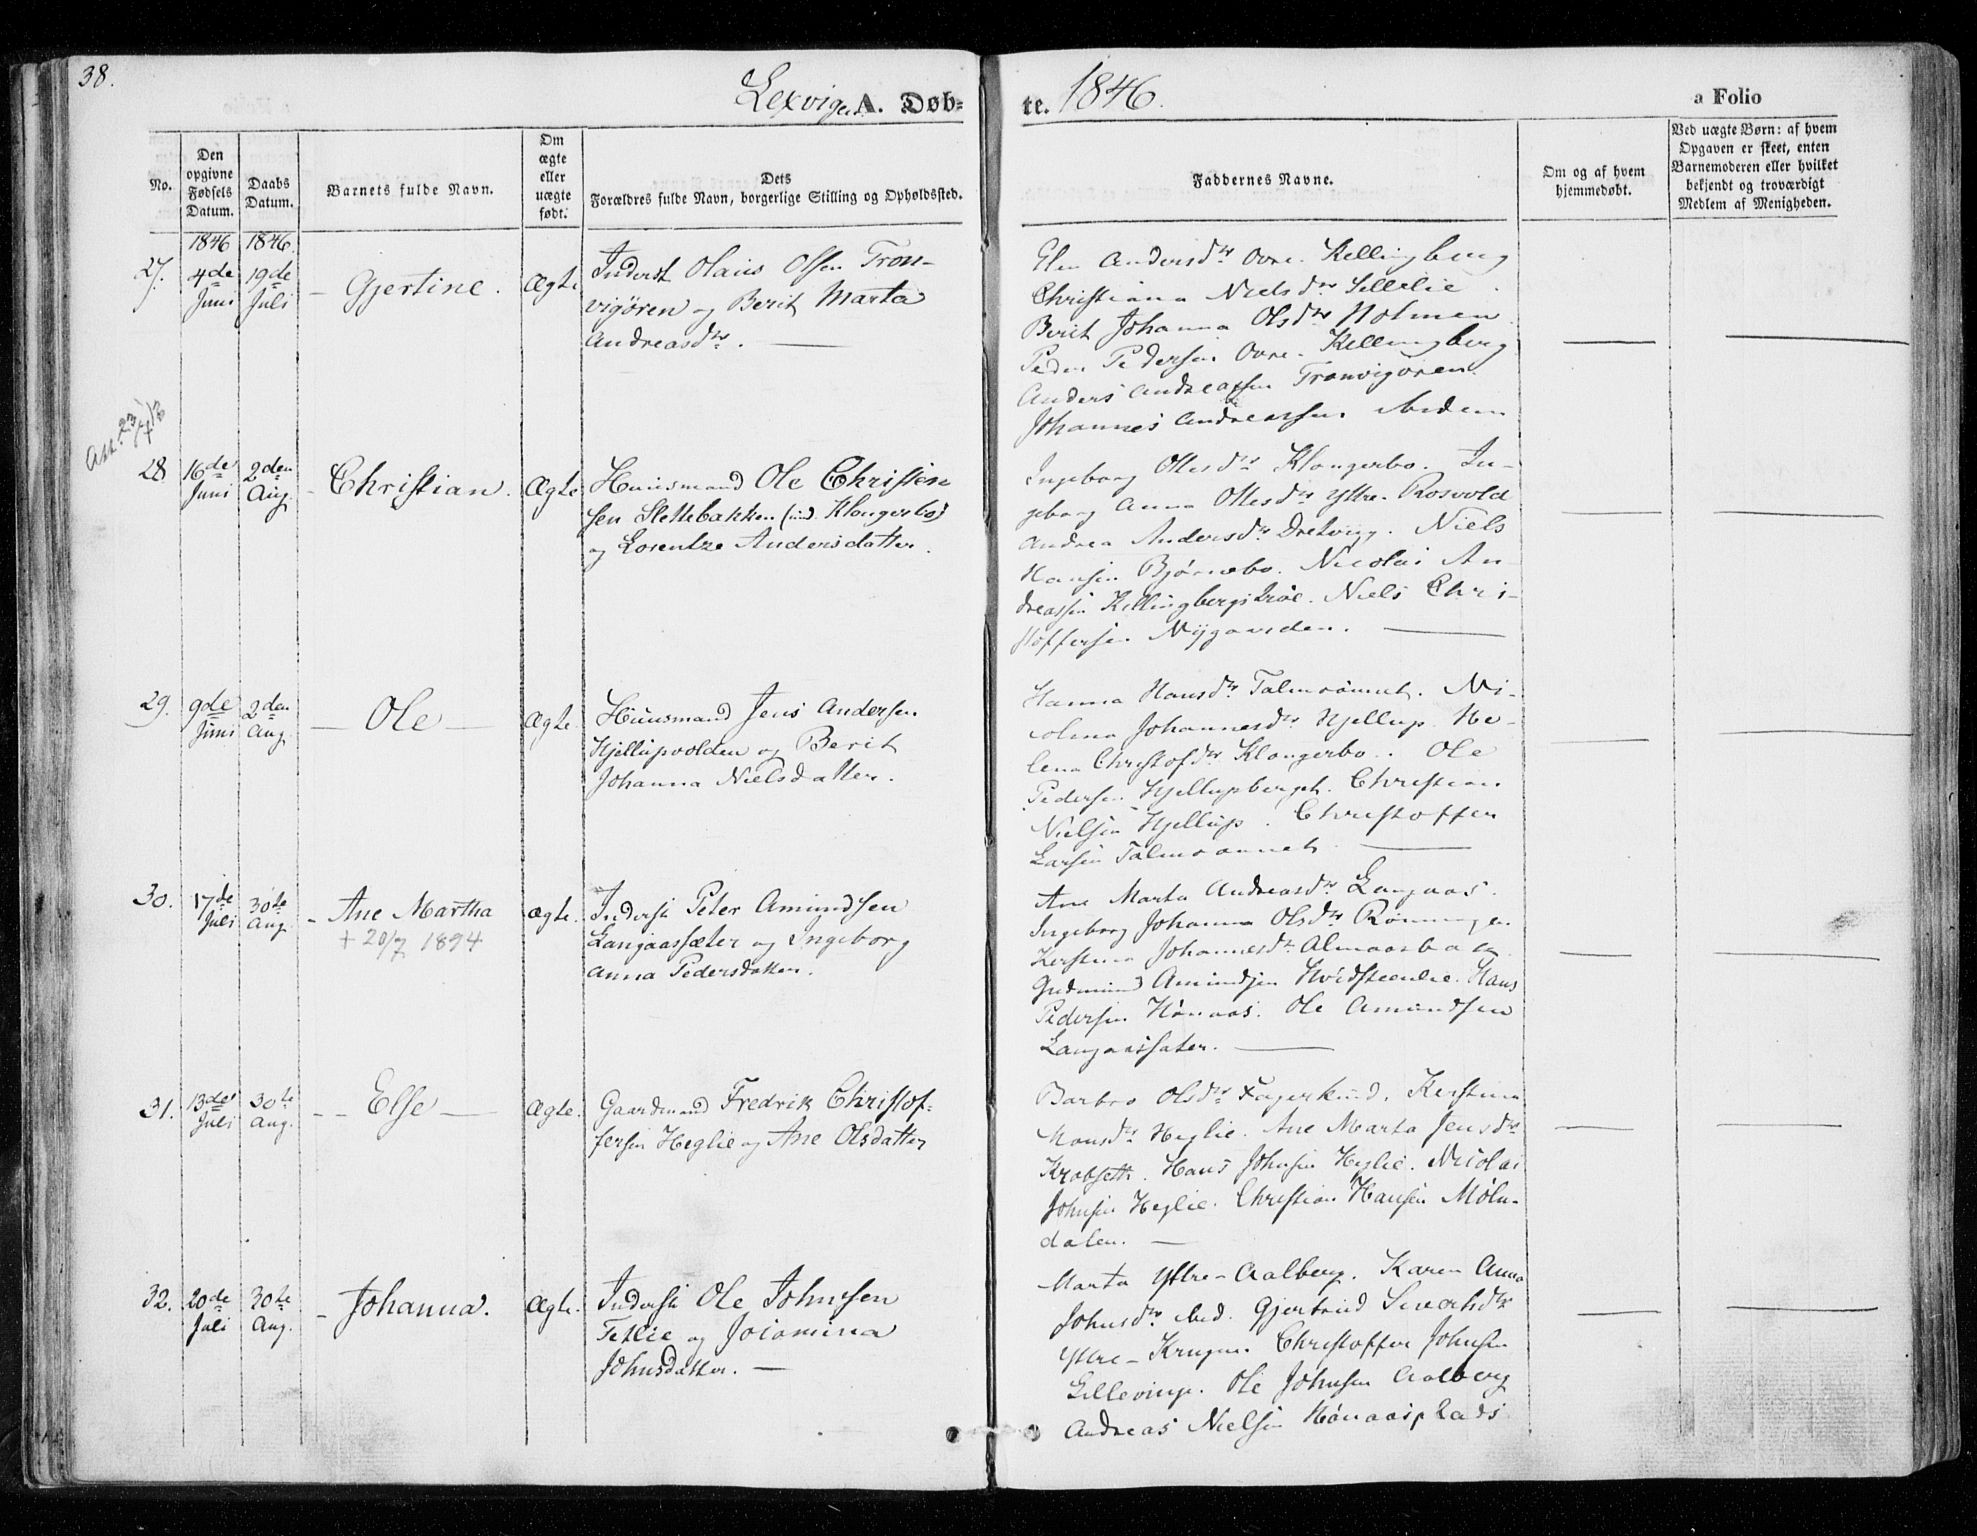 38.
Lexvigen A. Døb-
te. 1846.
a Folio
No.
Den opgivne Fødsels Datum.
Daabs Datum.
Barnets fulde Navn.
Om ægte eller uægte født.
Dets Forældres fulde Navn, borgerlige Stilling og Opholdssted.
Faddernes Navne.
Om og af hvem hjemmedøbt.
Ved uægte Børn: af hvem Opgaven er skeet, enten Barnemoderen eller hvilket bekjendt og troværdigt Medlem af Menigheden.
1846 1846
27. 4de Juni 19de Juli - Gjertine. Ægte
Inderst Olaus Olsen Tron-
vigøren og Berit Marta
Andreasdtr. —
Elen Andersdtr Ovre-Kellingberg
Christiana Nielsdtr Sellelie.
Berit Johanna Olsdtr Holmen
Peder Pedersen Ovre-Kellingberg
Anders Andreassen Tronvigøren.
Johannes Andreassen ibidem
Att. 23/4 13
28 16de Juni 2den Aug. - Christian. Ægte
Huusmand Ole Christen
sen Slettebakken (und. Klongerbo)
og Lorentze Andersdatter.
Ingeborg Ottesdtr Klongerbo. In-
geborg Anna Ottesdtr Yttre-Rosvold
Andrea Andersdtr Dretvigg. Niels
Hansen Bjørnebo. Nicolai An-
dreassen Kellingbergstrøe. Niels Chri-
stoffersen Nygaarden. —
29. 9de Juni 2den Aug. — Ole — Ægte
Huusmand Jens Andersen
Hjellupvolden og Berit
Johanna Nielsdatter.
Hanna Hansdtr Talmoünnet. Ni-
colina Johannesdtr Hjellup. He-
lena Christofdtr Klongerbo. Ole
Pedersen Hjellupberget. Christian
Nielsen Hjellup. Christoffer
Larsen —
30. 17de Juli 30te Aug. - Ane Martha Ægte.
+ 20/7 1894
Inderst Peter Amundsen
Langaassæter og Ingeborg
Anna Pedersdatter.
Ane Marta Andreasdtr Langaas.
Ingeborg Johanna Olsdtr Rønningen
Kerstina Johannesdtr Almaasbakken
Gudmund Amundsen Hvidsteenlie. Hans
Pedersen Hønaas. Ole Amundsen
Langaassæter. —
31. 13de Juli 30te Aug. - - Else — Ægte.
Gaardmand Fredrik Christof-
fersen Heglie og Ane Olsdatter
Barbro Olsdtr Fagerlund. Kerstina
Hansdtr Heglie. Ane Marta Jensdtr
Krobseth. Hans Johnsen Heglie. Nicolai
Johnsen Heglie. Christian Hansen Møln-
dalen. —
32. 20de Juli 30te Aug. - Johanna. Ægte.
Inderst Ole Johnsen
Tetlie og Joiamina
Johnsdatter. —
Marta Yttre-Aalberg. Karen Anna
Johnsdtr ibid. Gjertrud Sivertsdtr
Yttre-Krugen. Christoffer Johnsen
Lillevinge. Ole Johnsen Aalberg
Andreas Nielsen Hønaasplads